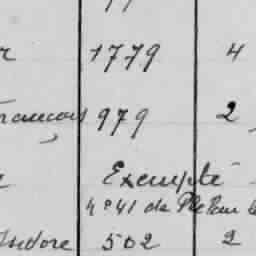 1779 4
François 979 2
Exempté
n° 41 de
Isidore 502 2